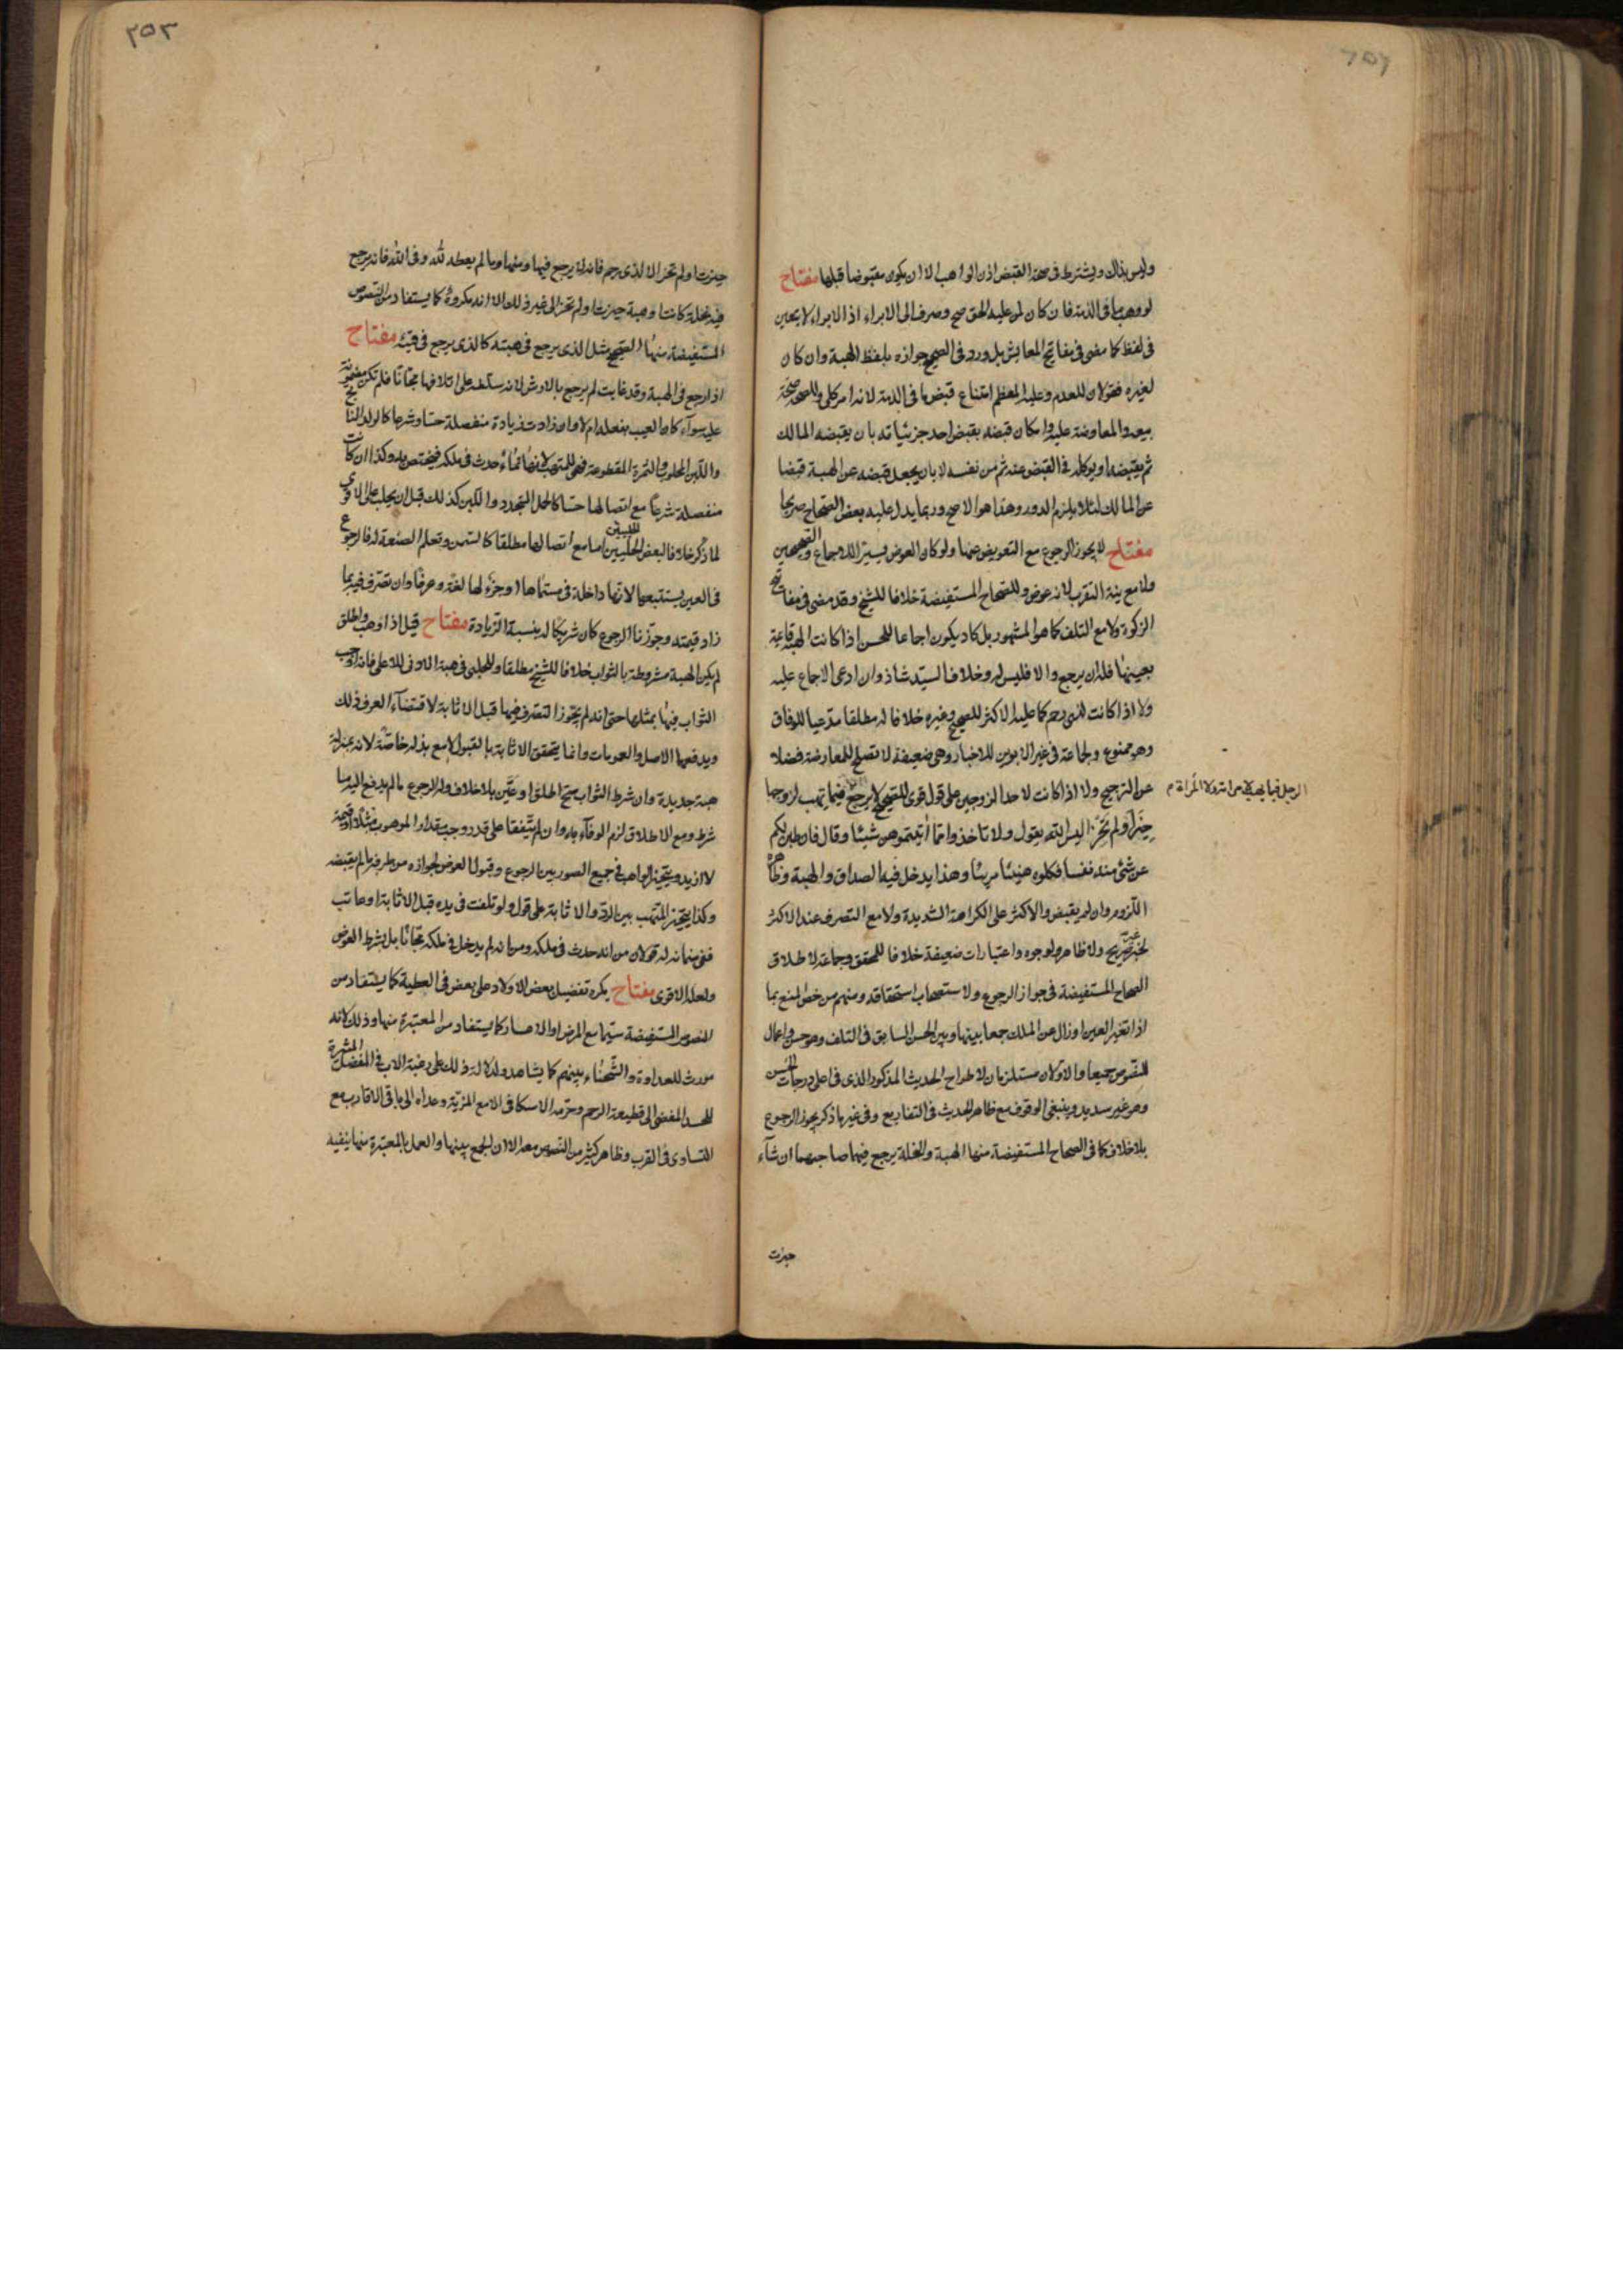 ٢٥٢
وليس بذاك ويشترط في صحة القبض اذن الواهب الا ان يكون مقبوضا قبلها مفتاح
لو وهب ما في الذمة فان كان لمن عليه الحق صح وصرف الى الابراء اذ الابراء لا يتعين
في لفظ كما مضى في مفاتيح المعايش بل ورد في الصحيح جوازه بلفظ الهبة وان كان
لغيره فقولان للعدم وعليه المعظم امتناع قبض ما في الذمة لانه امر كلي وللصحة صحة
بيعه والمعاوضة عليه وامكان قبضه بقبض احد جزئياته بان يقبضه المالك
ثم يقبضه او يوكله في القبض عنه ثم من نفسه لا بان يجعل قبضه عن الهبة قبضا
عن المالك لئلا يلزم الدور وهذا هو الاصح وربما يدل عليه بعض الصحاح صريحا
مفتاح لا يجوز الرجوع مع التعويض عنها ولو كان العوض يسيرا للاجماع والصحيحين
ولا مع نية التقرب لانه عوض وللصحاح المستفيضة خلافا للشيخ وقد مضى في مفاتيح
الزكوة ولا مع التلف كما هو المشهور بل كاد يكون اجماعا للحسن اذا كانت الهبة قائمة
بعينها فله ان يرجع والا فليس له وخلاف السيد شاذ وان ادعى الاجماع عليه
ولا اذا كانت لذي رحم كما عليه الاكثر للصحيح وغيره خلافا له مطلقا مدعيا للوفاق
وهو ممنوع ولجماعة في غير الابوين للاخبار وهي ضعيفة لا تصلح للمعارضة فضلا
عن الترجيح ولا اذا كانت لاحد الزوجين على قول قوي للصحيح لا يرجع فيما يهب لزوجها
حيز او لم يحز اليس الله يقول ولا تاخذوا مما آتيتموهن شيئا وقال فان طبن لكم
عن شئ منه نفسا فكلوه هنيئا مريئا وهذا يدخل فيه الصداق والهبة وظاهره
اللزوم وان لم يقبض والاكثر على الكراهة الشديدة ولا مع التصرف عند الاكثر
لخبر غير صريح ولا ظاهر ولوجوه واعتبارات ضعيفة خلافا للمحقق وجماعة لاطلاق
الصحاح المستفيضة في جواز الرجوع ولاستصحاب استحقاقه ومنهم من خص المنع بما
اذا تغير العين او زال عن الملك جمعا بينها وبين الحسن السابق في التلف وهو حسن واعمال
للنصوص جميعا والاولان مستلزمان لاطراح الحديث المذكور الذي في اعلى درجات الحسن
وهو غير سديد وينبغي الوقوف مع ظاهر الحديث في التفاريع وفي غير ما ذكر يجوز الرجوع
بلا خلاف كما في الصحاح المستفيضة منها الهبة والنحلة يرجع فيها صاحبهما ان شاء
حيزت
٢٥٣
حيزت او لم تحز الا لذي رحم فانه لا يرجع فيها ومنها وما لم يعطه لله وفي الله فانه يرجع
فيه نحلة كانت او هبة حيزت او لم تحز الى غير ذلك الا انه مكروه كما يستفاد من النصوص
المستفيضة منها الصحيح مثل الذي يرجع في هبته كالذي يرجع في قيئه مفتاح
اذا رجع في الهبة وقد عابت لم يرجع بالارش لانه سلطه على اتلافها مجانا فلم تكن مضمونة
عليه سواء كان العيب بفعله ام لا وان زادت زيادة منفصلة حسا وشرعا كالولد الناتج
واللبن المحلوب والثمرة المقطوعة فهي للمتهب لانها نماء حدث في ملكه فيختص به وكذا ان كانت
منفصلة شرعا مع اتصالها حسا كالحمل المتجدد واللبن كذلك قبل ان يحلب على الاقوى
لما ذكر خلافا لبعض الحلبيين اما مع اتصالها مطلقا كالسمن وتعلم الصنعة له فالرجوع
في العين يستتبعها لانها داخلة في مسماها او جزء لها لغة وعرفا وان تصرف فيه بما
زاد قيمته وجوزنا الرجوع كان شريكا له بنسبة الزيادة مفتاح قيل اذا وهب واطلق
لم يكن الهبة مشروطة بالثواب خلافا للشيخ مطلقا وللحلبي في هبة الادنى للاعلى فانه اوجب
الثواب فيها بمثلها حتى انه لم يجوز التصرف فيها قبل الاثابة لاقتضاء العرف ذلك
ويدفعها الاصل والعمومات وانما يتحقق الاثابة بالقبول لا مع بذله خاصة لانه بمنزلة
هبة جديدة وان شرط الثواب صح اطلق او عين بلا خلاف وله الرجوع ما لم يدفع اليه ما
شرط ومع الاطلاق لزم الوفاء به وان لم يتفقا على قدر وجب مقدار الموهوب مثلا او قيمة
لا ازيد ويتخير الواهب في جميع الصور بين الرجوع وقبول العوض لجوازه من طرفه ما لم يقبضه
وكذا يتخير المتهب بين الرد والاثابة على قول ولو تلفت في يده قبل الاثابة او عابت
ففي ضمانه له قولان من انه حدث في ملكه ومن انه لم يدخل في ملكه مجانا بل بشرط العوض
ولعله الاقوى مفتاح يكره تفضيل بعض الاولاد على بعض في العطية كما يستفاد من
النصوص المستفيضة سيما مع المرض او الاعسار كما يستفاد من المعتبرة منها وذلك لانه
مورث للعداوة والشحناء بينهم كما يشاهد ولدلالة ذلك على رغبة الاب في المفضل المشيرة
للحسد المفضي الى قطيعة الرحم وحرمه الاسكافي الا مع المزية وعداه الى باقي الاقارب مع
التساوي في القرب وظاهر كثير من النصوص معه الا ان الجمع بينها والعمل بالمعتبرة منها ينفيه